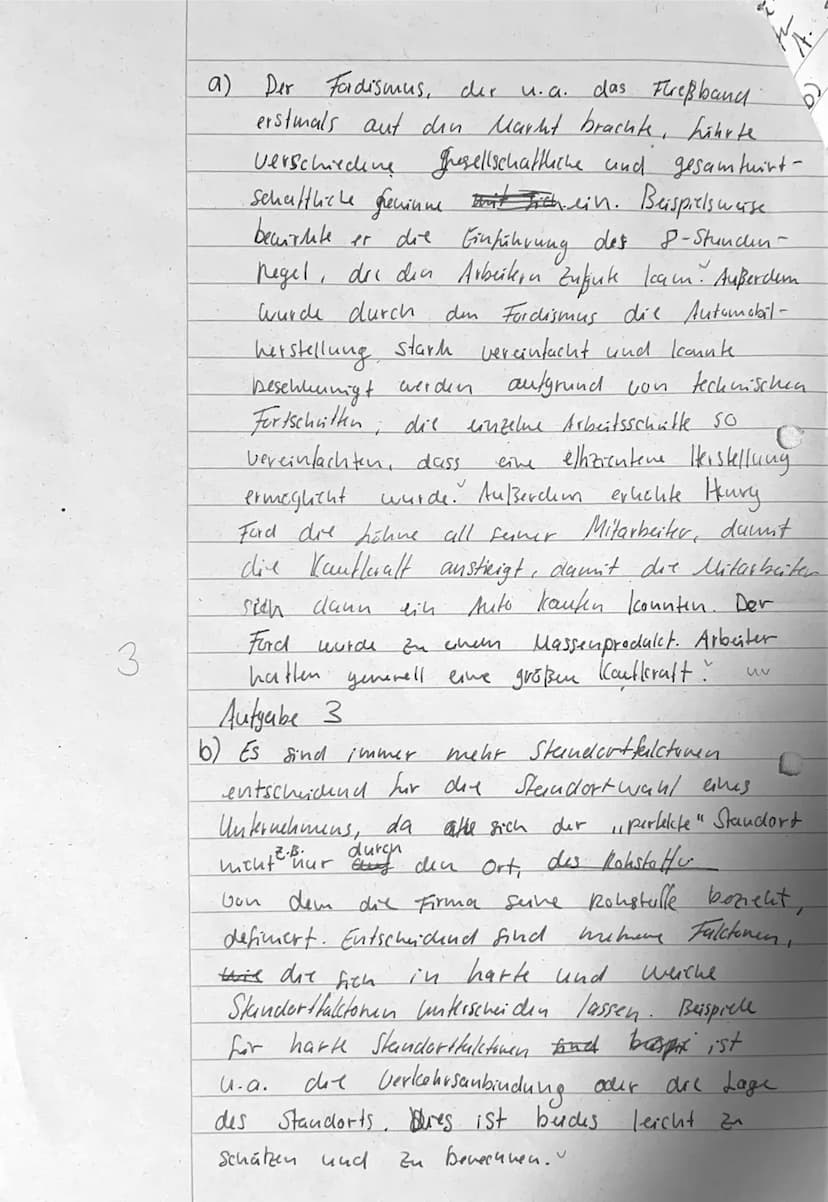 a) Der Fordismus, der u.a. das Fließband
erstmals auf den Markt brachte, führte
verschiedene gesellschaftliche und gesamtwirt-
schaftliche Gewinne mit sich ein. Beispielsweise
bewirkte er die Einführung des 8-Stunden-
Regel, die den Arbeitern zugute kam. Außerdem
wurde durch den Fordismus die Automobil-
herstellung stark vereinfacht und konnte
beschleunigt werden aufgrund von technischen
Fortschritten, die einzelne Arbeitsschritte so
vereinfachten, dass eine effizientene Herstellung
ermöglicht wurde. Außerdem erhöhte Henry
Ford die Löhne all seiner Mitarbeiter, damit
die Kaufkraft anstieigt, damit die Mitarbeiter
sich dann ein Auto kaufen konnten. Der
Ford wurde zu einem Massenprodukt. Arbeiter
3 hatten generell eine größen Kaufkraft.
Aufgabe 3
b) Es sind immer mehr Standortfaktoren
entscheidend für die Standortwahl eines
Unternehmens, da sich der „perfekte" Standort
nicht z.B. nur durch den Ort, des Rohstoffs
von dem die Firma seine Rohstoffe bezieht,
definiert. Entscheidend sind mehrere Faktoren,
die sich in harte und weiche
Standortfaktoren unterscheiden lassen. Beispiele
für harte Standortfaktoren ist
u.a. die Verkehrsanbindung oder die Lage
des Standorts. Dies ist beides leicht zu
schätzen und zu berechnen.
b)
A.